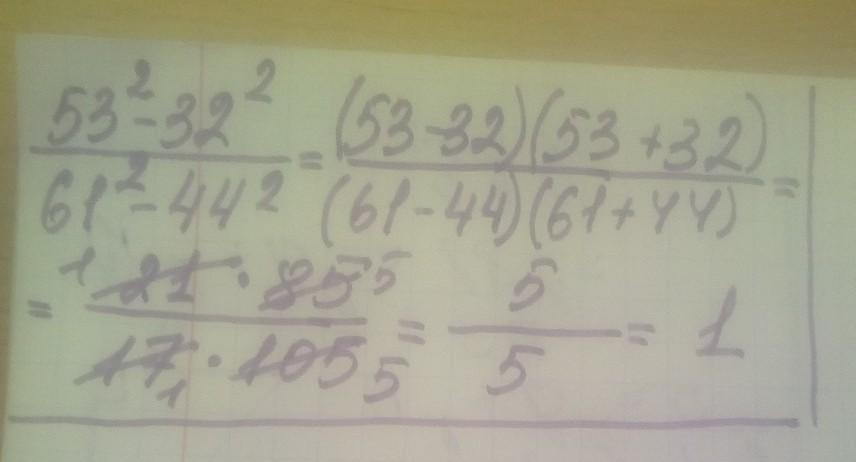 53²-32² / 61²-44² = (53-32)(53+32) / (61-44)(61+44) =
= ¹21·85⁵ / 17₁·105₅ = 5/5 = 1